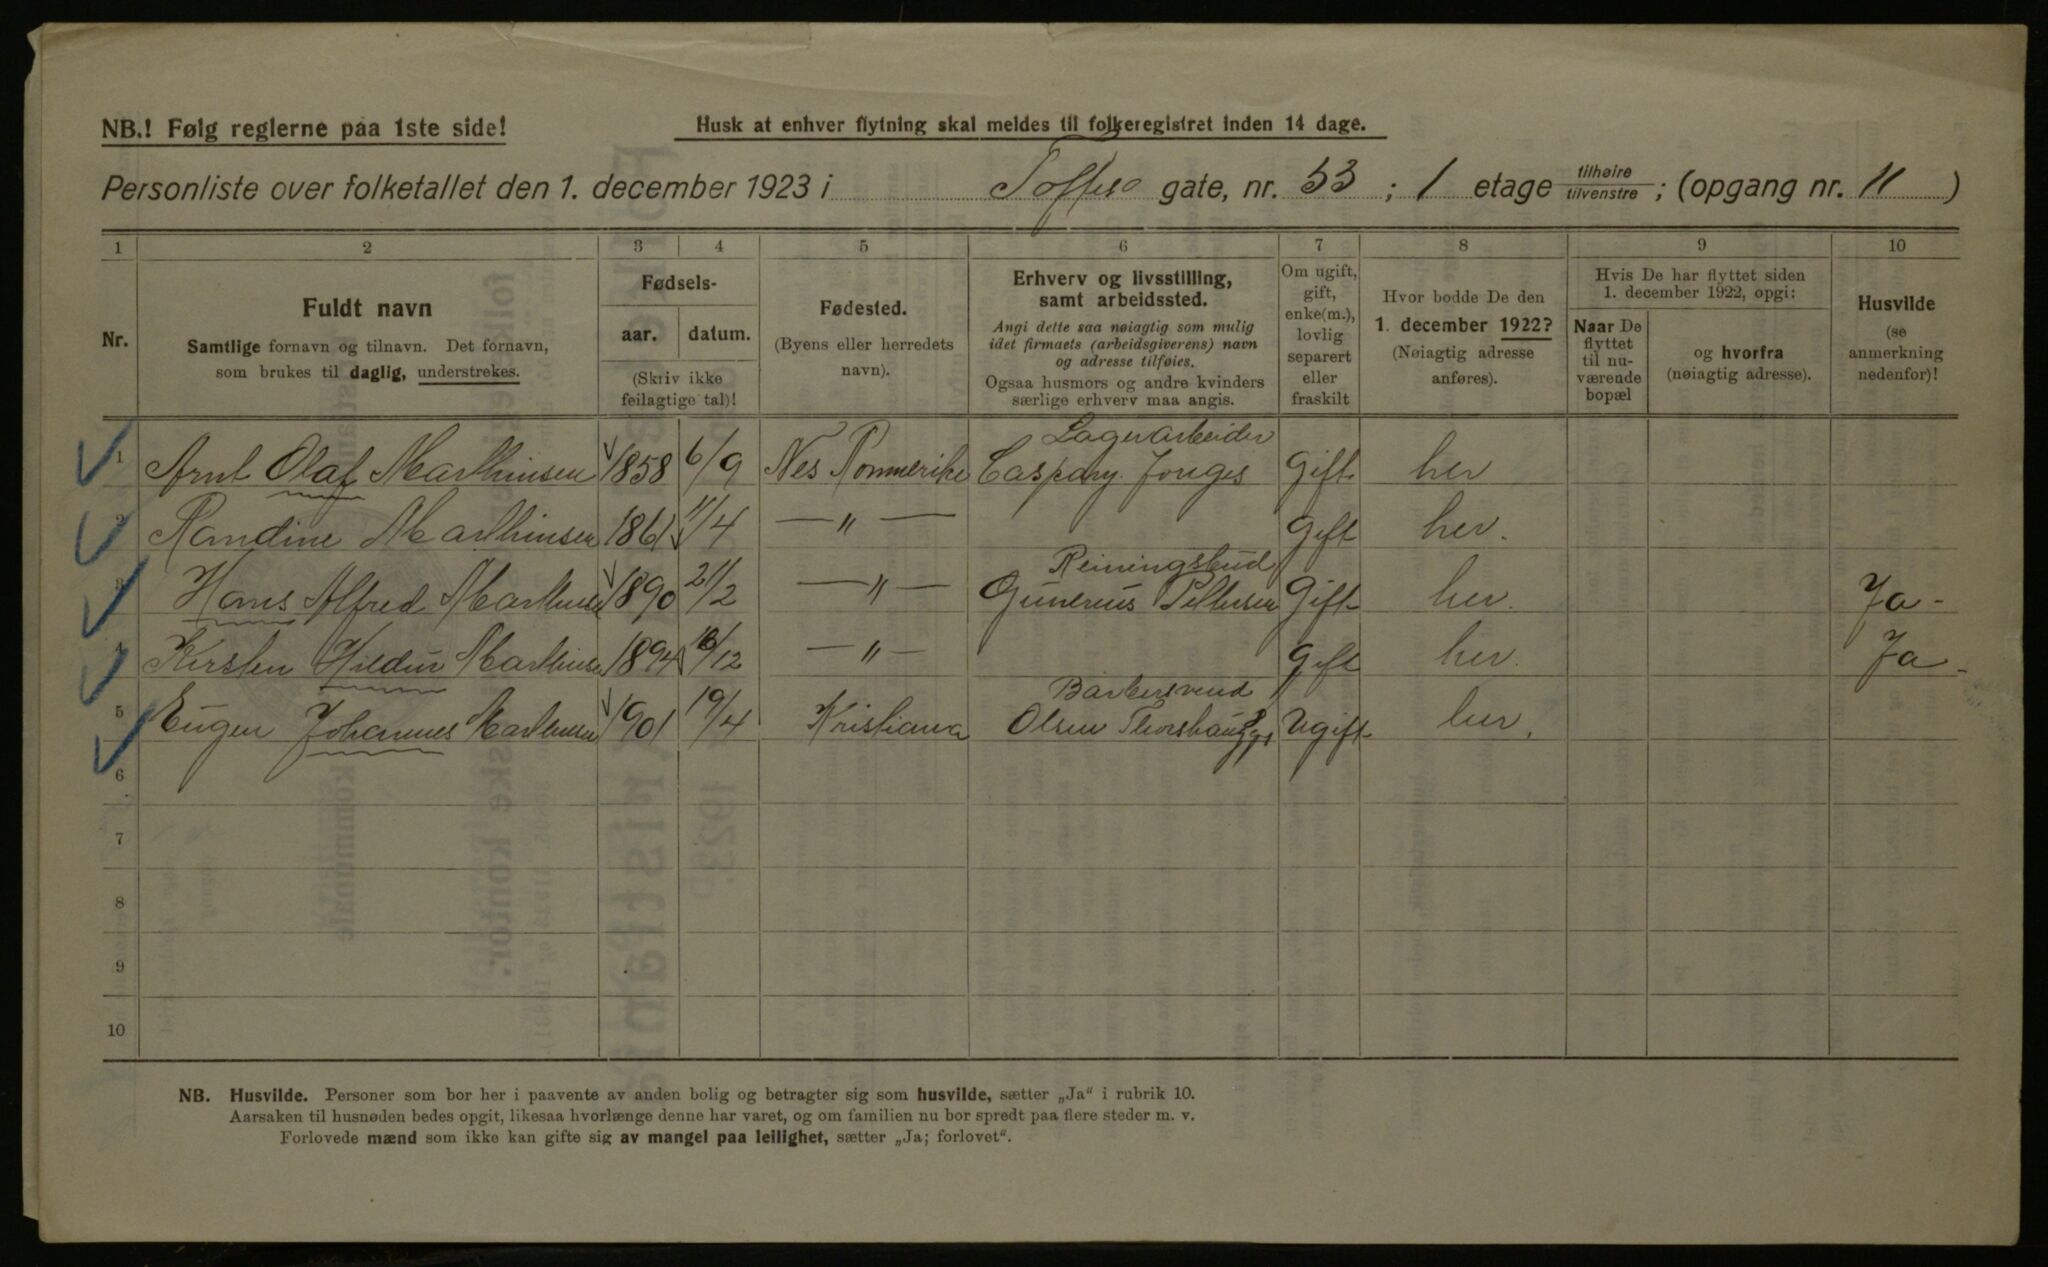 NB.! Følg reglerne paa 1ste side!
Husk at enhver flytning skal meldes til folkeregistret inden 14 dage.
Personliste over folketallet den 1. december 1923 i Toftes gate, nr. 53; 1 etage tilhøire/tilvenstre; (opgang nr. 11)
1 2 3 4 5 6 7 8 9 10
Nr.
Fuldt navn
Samtlige fornavn og tilnavn. Det fornavn,
som brukes til daglig, understrekes.
Fødsels-
aar. datum.
(Skriv ikke
feilagtige tal)!
Fødested.
(Byens eller herredets
navn).
Erhverv og livsstilling,
samt arbeidssted.
Angi dette saa nøiagtig som mulig
idet firmaets (arbeidsgiverens) navn
og adresse tilføies.
Ogsaa husmors og andre kvinders
særlige erhverv maa angis.
Om ugift,
gift,
enke(m.),
lovlig
separert
eller
fraskilt
Hvor bodde De den
1. december 1922?
(Nøiagtig adresse
anføres).
Hvis De har flyttet siden
1. december 1922, opgi:
Naar De
flyttet
til nu-
værende
bopæl
og hvorfra
(nøiagtig adresse).
Husvilde
(se
anmerkning
nedenfor)!
Lagerarbeider
1 Arnt Olaf Marthinsen 1858 6/9 Nes Rommerike Caspary. Gift her
2 Randine Marthinsen 1861 11/4 — „ — Gift her.
Reiningsbud
3 Hans Alfred Marthinsen 1890 21/2 — „ — Gunerius Pettersen Gift her. Ja -
4 Kirsten Hildur Marthinsen 1894 16/12 — „ — Gift her. Ja -
Barbersvend
5 Eugen Johannes Marthinsen 1901 19/4 Kristiania Olsen Ugift her.
6
7
8
9
10
NB. Husvilde. Personer som bor her i paavente av anden bolig og betragter sig som husvilde, sætter „Ja“ i rubrik 10.
Aarsaken til husnøden bedes opgit, likesaa hvorlænge denne har varet, og om familien nu bor spredt paa flere steder m. v.
Forlovede mænd som ikke kan gifte sig av mangel paa leilighet, sætter „Ja; forlovet“.